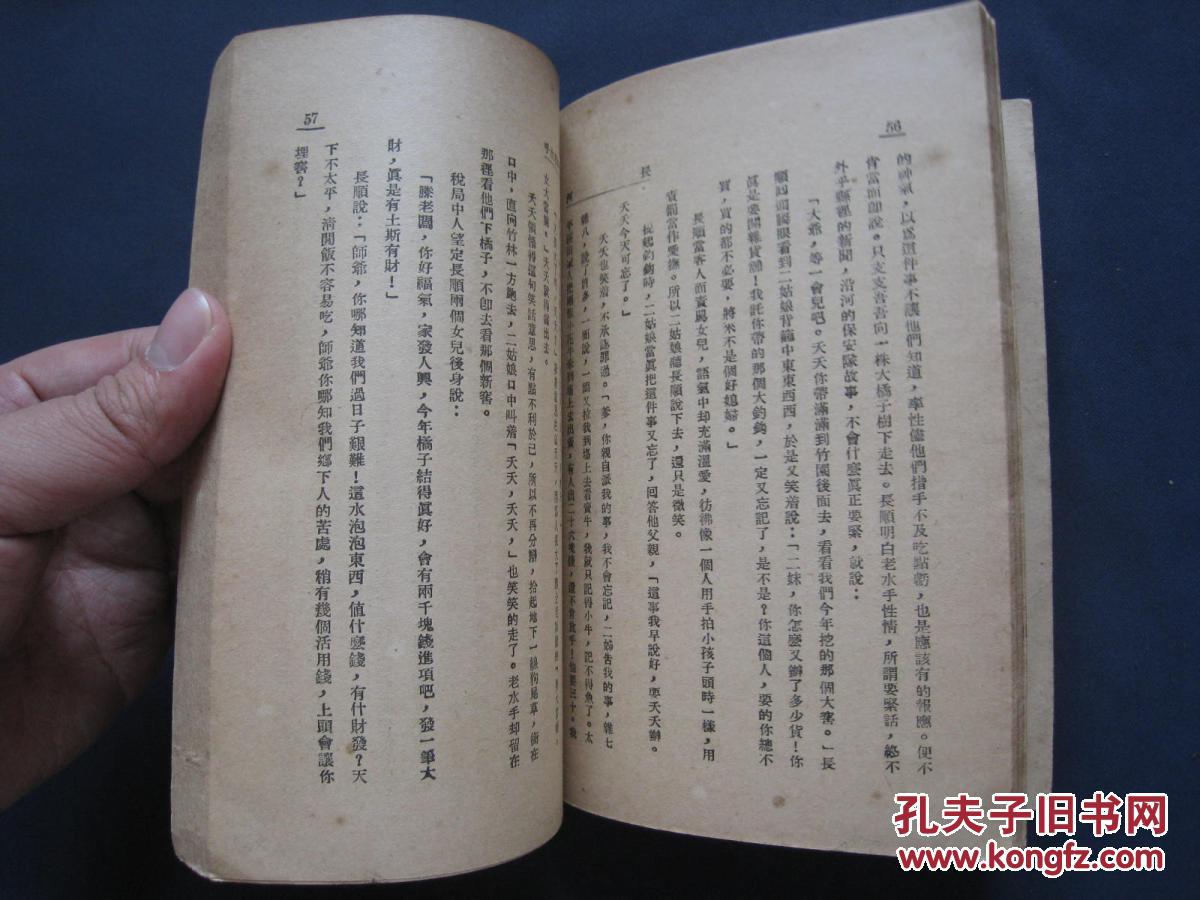 56
的神氣，以爲這件事不讓他們知道，率性儘他們措手不及吃點虧，也是應該有的報應。便不
肯當面卽說。只支支吾吾向一株大橘子樹下走去。長順明白老水手性情，所謂要緊話，終不
外乎縣裡的新聞，沿河的保安隊故事，不會什麼眞正要緊，就說：
「大爺，等一會兒吧。夭夭你帶滿滿到竹園後面去，看看我們今年挖的那個大窖。」長
順回頭瞬眼看到二姑娘背籠中東東西西，於是又笑着說：「二妹，你怎麼又辦了多少貨！你
眞是要開雜貨鋪！我託你帶的那個大釣鈎，一定又忘記了，是不是？你這個人，要的你總不
買，買的都不必要，將來不是個好媳婦。」
長順當客人面責罵女兒，語氣中却充滿溫愛，彷彿像一個人用手拍小孩子頭時一樣，用
責罰當作愛撫。所以二姑娘聽長順說下去，還只是微笑。
提起釣鈎時，二姑娘當眞把這件事又忘了，回答他父親，「這事我早說好，要夭夭辦。
夭夭今天可忘了。」
夭夭也笑着，不承認罪過。「爹，你親自派我的事，我不會忘記，二姊告我的事，雜七
雜八，說了許多，一面說，一面又拉我到場上去看賣牛，我就只記得小牛，記不得魚了。太
長
河
57
夭夭領悟得這句笑話意思，有點不利於己，所以不再分辯，拾起地下一線狗尾草，銜在
口中，直向竹林一方跑去，二姑娘口中叫着「夭夭，夭夭，」也笑笑的走了。老水手却留在
那裡看他們下橘子，不卽去看那個新窖。
稅局中人望定長順兩個女兒後身說：
「滕老闆，你好福氣，家發人興，今年橘子結得眞好，會有兩千塊錢進項吧，發一筆大
財，眞是有土斯有財！」
長順說：「師爺，你哪知道我們過日子艱難！這水泡泡東西，值什麼錢，有什財發？天
下不太平，清閒飯不容易吃，師爺你哪知我們鄉下人的苦處，稍有幾個活用錢，上頭會讓你
埋窖？」
孔夫子旧书网
www.kongfz.com